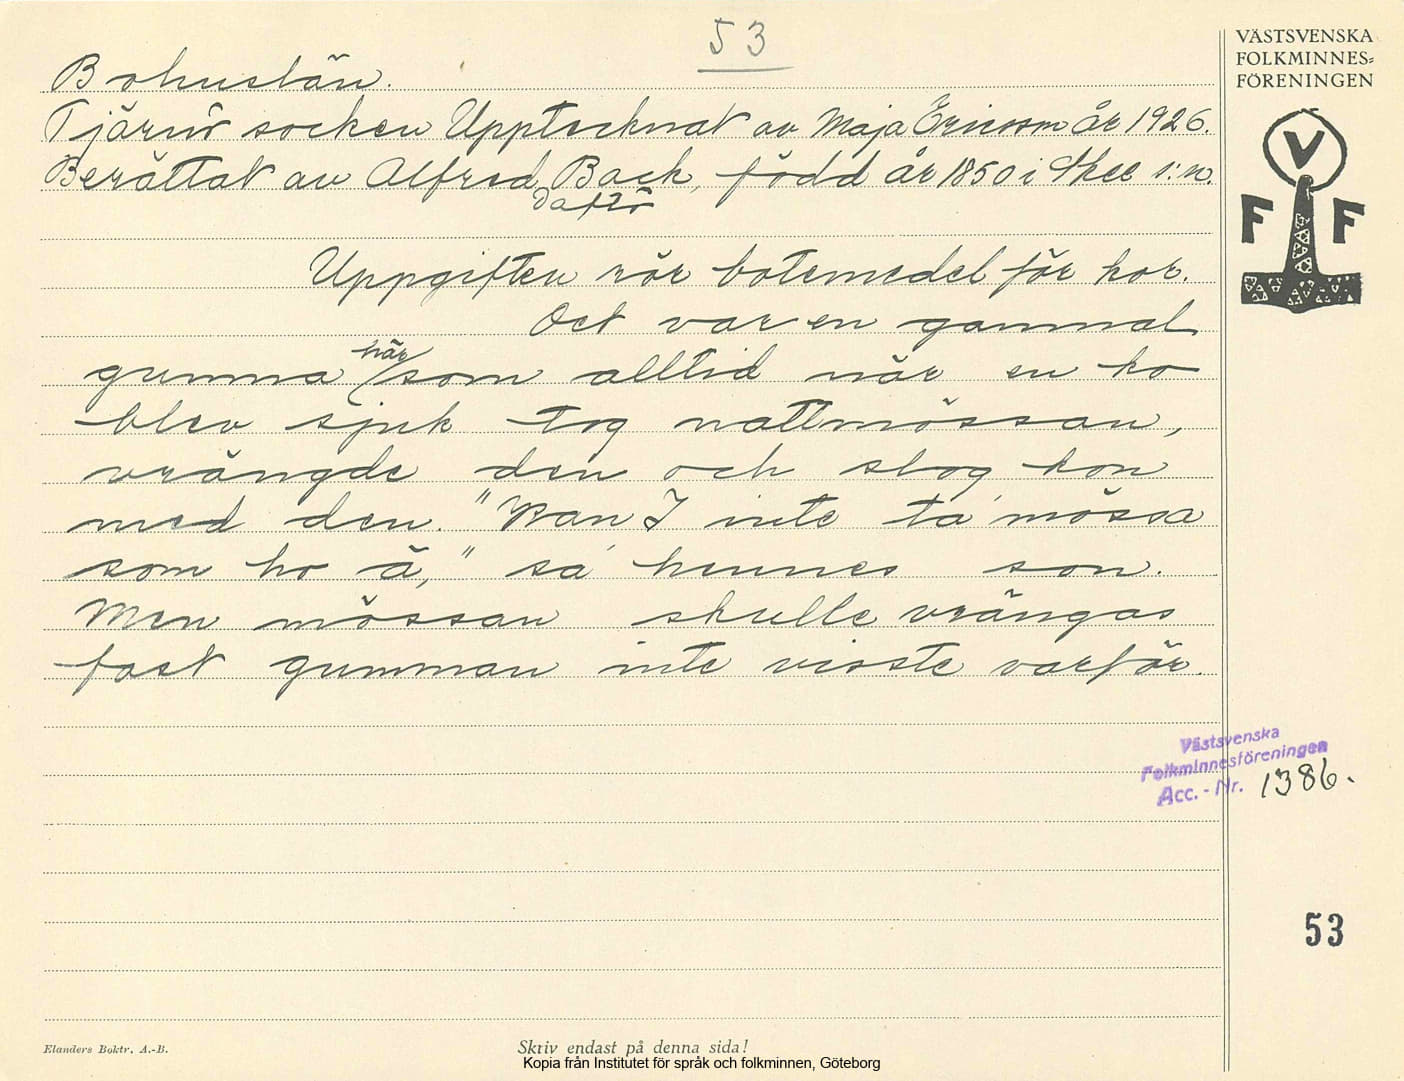 53
VÄSTSVENSKA
FOLKMINNES-
FÖRENINGEN
V
F F
Bohuslän.
Tjärnö socken Upptecknat av Maja Ericsson År 1926.
Berättat av Alfred Back, född år 1850 i Skee s:n.
Uppgiften rör botemedel för kor.
Det var en gammal
gumma här som alltid när en ko
blev sjuk tog nattmössan,
vrängde den och slog kon
med den. "Kan I inte ta mössa
som ho ä," sa' hennes son.
Men mössan skulle vrängas
fast gumman inte visste varför.
Västsvenska
Folkminnesföreningen
Acc. - Nr. 1386.
53
Elanders Boktr. A.-B.
Skriv endast på denna sida!
Kopia från Institutet för språk och folkminnen, Göteborg